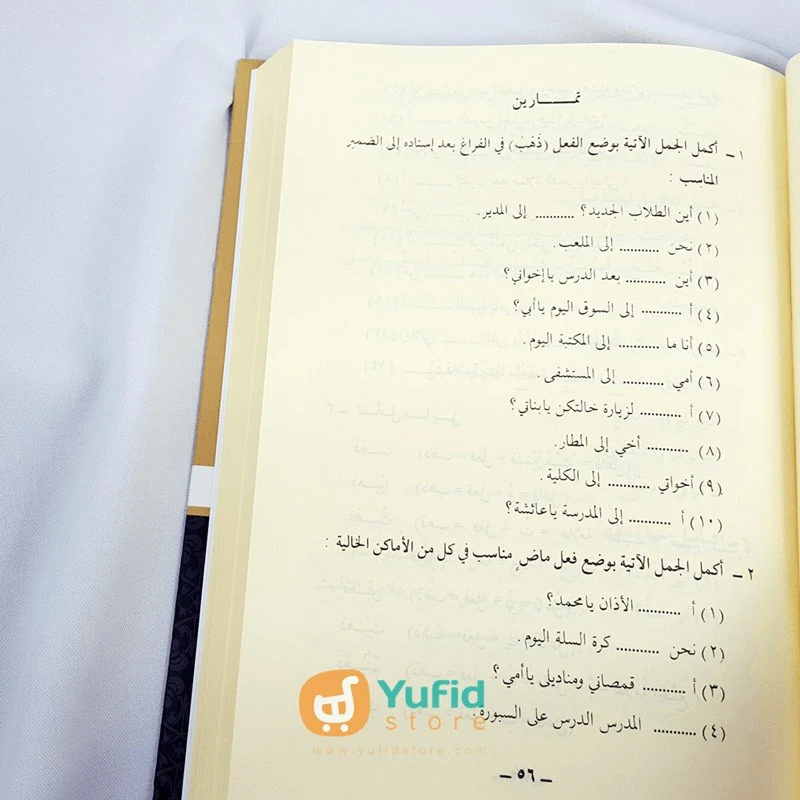 تمـــــارين
١ ـ أكمل الجمل الآتية بوضع الفعل (ذَهَبَ) في الفراغ بعد إسناده إلى الضمير
المناسب :
(١) أين الطلاب الجديد؟ ........... إلى المدير.
(٢) نحن ........... إلى الملعب.
(٣) أين ........... بعد الدرس ياإخواني؟
(٤) أ ........... إلى السوق اليوم ياأبي؟
(٥) أنا ما ........... إلى المكتبة اليوم.
(٦) أمي ........... إلى المستشفى.
(٧) أ ........... لزيارة خالتكن يابناتي؟
(٨) ........... أخي إلى المطار.
(٩) أخواتي ........... إلى الكلية.
(١٠) أ ........... إلى المدرسة ياعائشة؟
٢ ـ أكمل الجمل الآتية بوضع فعل ماضٍ مناسب في كل من الأماكن الخالية :
(١) أ ........... الأذان يامحمد؟
(٢) نحن ........... كرة السلة اليوم.
(٣) أ ........... قمصاني ومناديلى ياأمي ؟
(٤) ........... المدرس الدرس على السبورة.
Yufid
store
www.yufidstore.com
ـ ٥٦ ـ